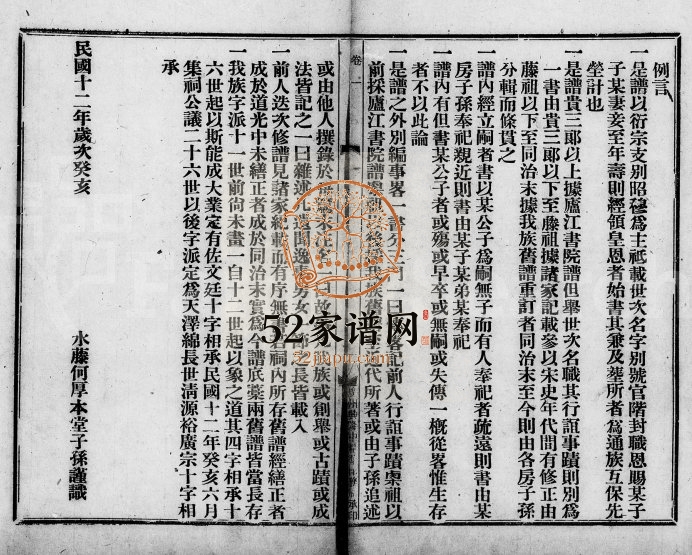 例言
一是譜以衍宗支别昭穆爲主祗載世次名字别號官階封職恩賜某子
子某妻妾至年壽則經領皇恩者始書其兼及葬所者爲通族互保先
塋計也
一是譜貴三郎以上據廬江書院譜但舉世次名職其行誼事蹟則别爲
一書由貴三郎以下至藤祖據諸家記載參以宋史年代間有修正由
藤祖以下至同治末據我族舊譜重訂者同治末至今則由各房子孫
分輯而條貫之
一譜内經立嗣者書以某公子爲嗣無子而有人奉祀者疏遠則書由某
房子孫奉祀親近則書由某子某弟某奉祀
一譜内有但書某公子者或殤或早卒或無嗣或失傳一概從畧惟生存
者不以此論
一是譜之外别編事畧一書分 曰 畧記前人行誼事蹟槼祖以
前採廬江書院譜槼祖以後採我族舊 代所著或由子孫追述
或由他人撰錄於 末注 曰故 族或創舉或古蹟或成
法皆記之一曰雜述凡遺聞逸事男女 之長皆載入
一前人迭次修譜見諸家紀載而有序無書 祠内所存舊譜經繕正者
成於道光中未繕正者成於同治末實爲今譜底藁兩舊譜皆當長存
一我族字派十一世前尚未畫一自十二世起以象之道其四字相承十
六世起以斯能成大業定有佐文廷十字相承民國十二年癸亥六月
集祠公議二十六世以後字派定爲天澤綿長世清源裕廣宗十字相
承
民國十二年歲次癸亥
水藤何厚本堂子孫謹識
卷一
承印
52家谱网
52jiapu.com